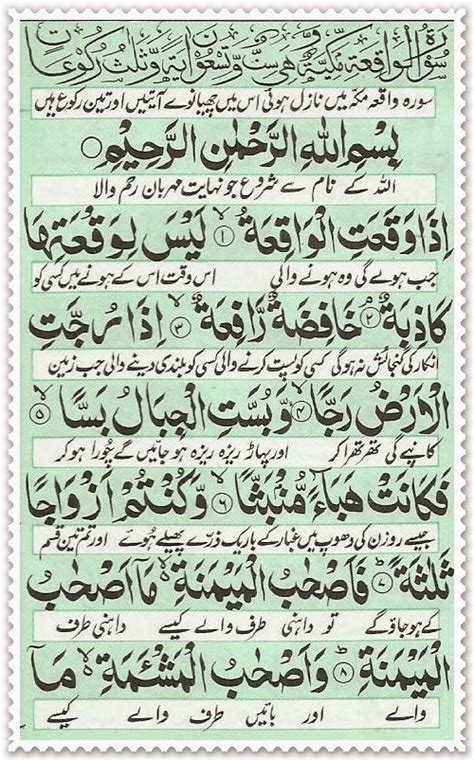 سُوْرَةُ الْوَاقِعَةِ مَكِّيَّةٌ وَّهِيَ سِتٌّ وَّتِسْعُوْنَ اٰيَةً وَّثَلٰثُ رُكُوْعَاتٍ
سورہ واقعہ مکہ میں نازل ہوئی اس میں چھیانوے آیتیں اور تین رکوع ہیں
بِسْمِ اللهِ الرَّحْمٰنِ الرَّحِيْمِ
اللہ کے نام سے شروع جو نہایت مہربان رحم والا
اِذَا وَقَعَتِ الْوَاقِعَةُ ۙ‏﴿۱﴾ لَيْسَ لِوَقْعَتِهَا
جب ہولے گی وہ ہونے والی اس وقت اس کے ہونے میں کسی کو
كَاذِبَةٌ ۘ‏﴿۲﴾ خَافِضَةٌ رَّافِعَةٌ ۙ‏﴿۳﴾ اِذَا رُجَّتِ
انکار کی گنجائش نہ ہوگی کسی کو پست کرنے والی کسی کو بلندی دینے والی جب زمین
الْاَرْضُ رَجًّا ۙ‏﴿۴﴾ وَّبُسَّتِ الْجِبَالُ بَسًّا ۙ‏﴿۵﴾
کانپے گی تھرتھرا کر اور پہاڑ ریزہ ریزہ ہو جائیں گے چورا ہو کر
فَكَانَتْ هَبَآءً مُّنْۢبَثًّا ۙ‏﴿۶﴾ وَّكُنْتُمْ اَزْوَاجًا
جیسے روزن کی دھوپ میں غبار کے باریک ذرے پھیلے ہوئے اور تم تین قسم
ثَلٰثَةً ؕ‏﴿۷﴾ فَاَصْحٰبُ الْمَيْمَنَةِ ۙ مَاۤ اَصْحٰبُ
کے ہو جاؤ گے تو داہنی طرف والے کیسے داہنی طرف
الْمَيْمَنَةِ ؕ‏﴿۸﴾ وَاَصْحٰبُ الْمَشْـَٔمَةِ ۙ مَاۤ
والے اور بائیں طرف والے کیسے